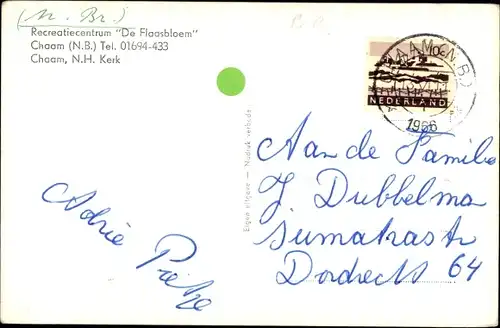 (N. Br.)
Recreatiecentrum "De Flaasbloem"
Chaam (N.B.) Tel. 01694-433
Chaam, N.H. Kerk
CHAAM (N.B.)
1966
NEDERLAND
Eigen uitgave — Nadruk verboden
Aan de Familie
J. Dubbelma
Sumatrastr
Dordrecht 64
Adrie